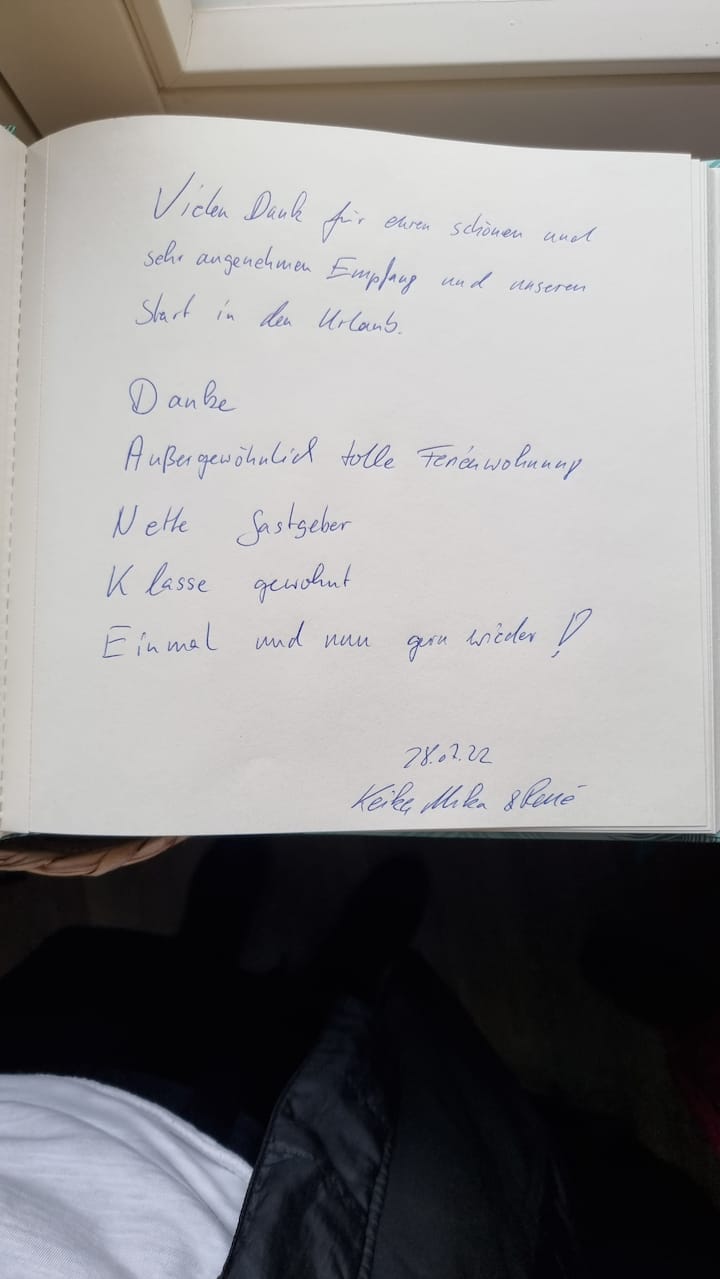 Vielen Dank für euren schönen und
sehr angenehmen Empfang und unseren
Start in den Urlaub.
Danke
Außergewöhnlich tolle Ferienwohnung
Nette Gastgeber
Klasse gewohnt
Einmal und nun gern wieder !
28.07.22
Mika & René